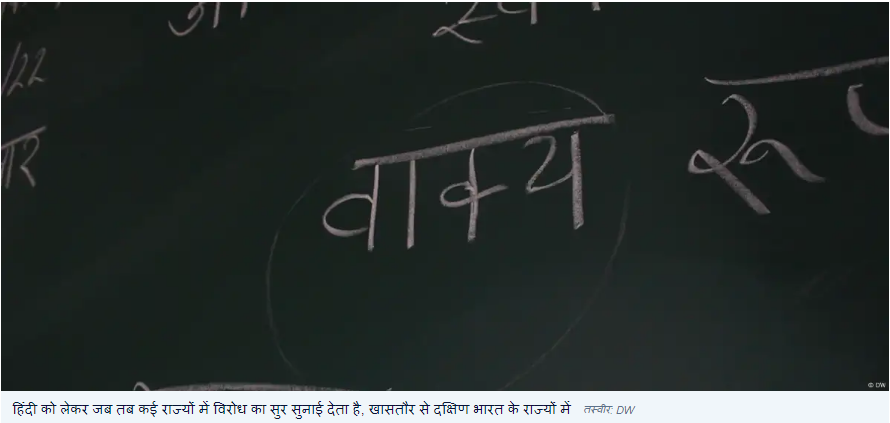 /22
वाक्य
रू
© DW
हिंदी को लेकर जब तब कई राज्यों में विरोध का सुर सुनाई देता है, खासतौर से दक्षिण भारत के राज्यों में तस्वीर: DW